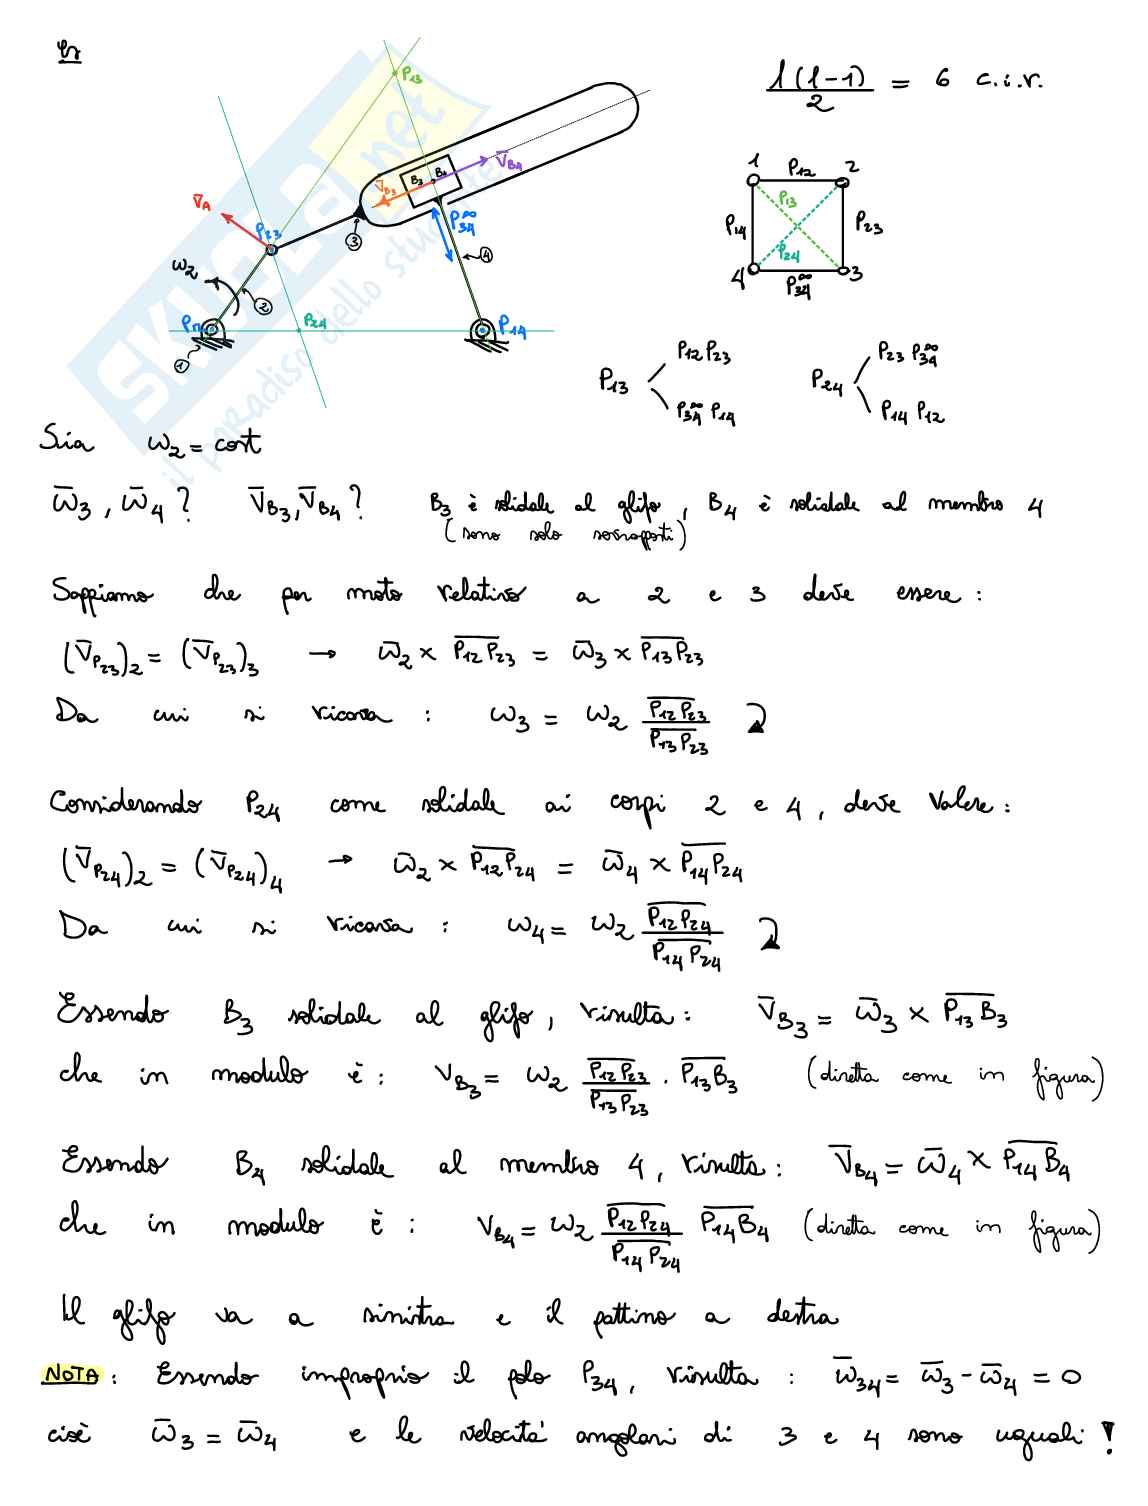 Es
l(l-1)/2 = 6 c.i.r.
P13
V̄BA
V̄B3
B3 B4
V̄A
P23
P34∞
3
4
ω2
2
P24
P14
1
1 P12 2
P13
P14 P23
P24
4 P34∞ 3
P13 < P12 P23
P34∞ P14
P24 < P23 P34∞
P14 P12
SKUOLA.net
il paradiso dello studente
Sia ω2 = cost
ω̄3 , ω̄4 ? V̄B3, V̄B4 ? B3 è solidale al glifo, B4 è solidale al membro 4
(sono solo sovrapposti)
Sappiamo che per moto relativo a 2 e 3 deve essere :
(V̄P23)2 = (V̄P23)3 → ω̄2 × P12P23 = ω̄3 × P13P23
Da cui si ricava : ω3 = ω2 P12P23/P13P23
Considerando P24 come solidale ai corpi 2 e 4, deve valere :
(V̄P24)2 = (V̄P24)4 → ω̄2 × P12P24 = ω̄4 × P14P24
Da cui si ricava : ω4 = ω2 P12P24/P14P24
Essendo B3 solidale al glifo, risulta : V̄B3 = ω̄3 × P13B3
che in modulo è : VB3 = ω2 P12P23/P13P23 · P13B3 (diretta come in figura)
Essendo B4 solidale al membro 4, risulta : V̄B4 = ω̄4 × P14B4
che in modulo è : VB4 = ω2 P12P24/P14P24 P14B4 (diretta come in figura)
Il glifo va a sinistra e il pattino a destra
NOTA : Essendo improprio il polo P34, risulta : ω̄34 = ω̄3 - ω̄4 = 0
cioè ω̄3 = ω̄4 e le velocità angolari di 3 e 4 sono uguali !